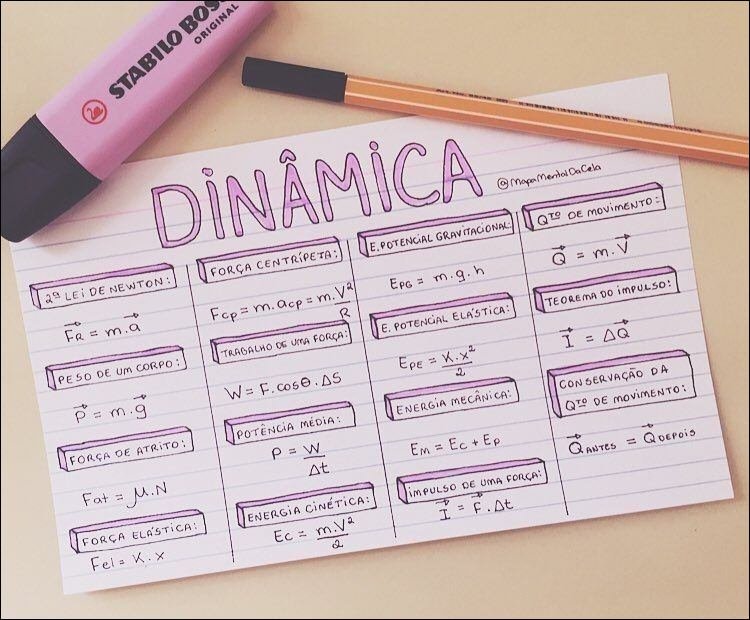 STABILO BOS
ORIGINAL
DINÂMICA
@MapaMentalDaCela
2ª LEI DE NEWTON:
F⃗R = m.a⃗
PESO DE UM CORPO:
P⃗ = m.g⃗
FORÇA DE ATRITO:
Fat = μ.N
FORÇA ELÁSTICA:
Fel = K.x
FORÇA CENTRÍPETA:
Fcp = m.acp = m.V²
R
TRABALHO DE UMA FORÇA:
W = F.cosθ.ΔS
POTÊNCIA MÉDIA:
P = W
Δt
ENERGIA CINÉTICA:
Ec = m.V²
2
E. POTENCIAL GRAVITACIONAL:
EPG = m.g.h
E. POTENCIAL ELÁSTICA:
EPE = K.x²
2
ENERGIA MECÂNICA:
Em = Ec + Ep
IMPULSO DE UMA FORÇA:
I⃗ = F⃗.Δt
QTD DE MOVIMENTO:
Q⃗ = m.V⃗
TEOREMA DO IMPULSO:
I⃗ = ΔQ⃗
CONSERVAÇÃO DA
QTD DE MOVIMENTO:
Q⃗ANTES = Q⃗DEPOIS